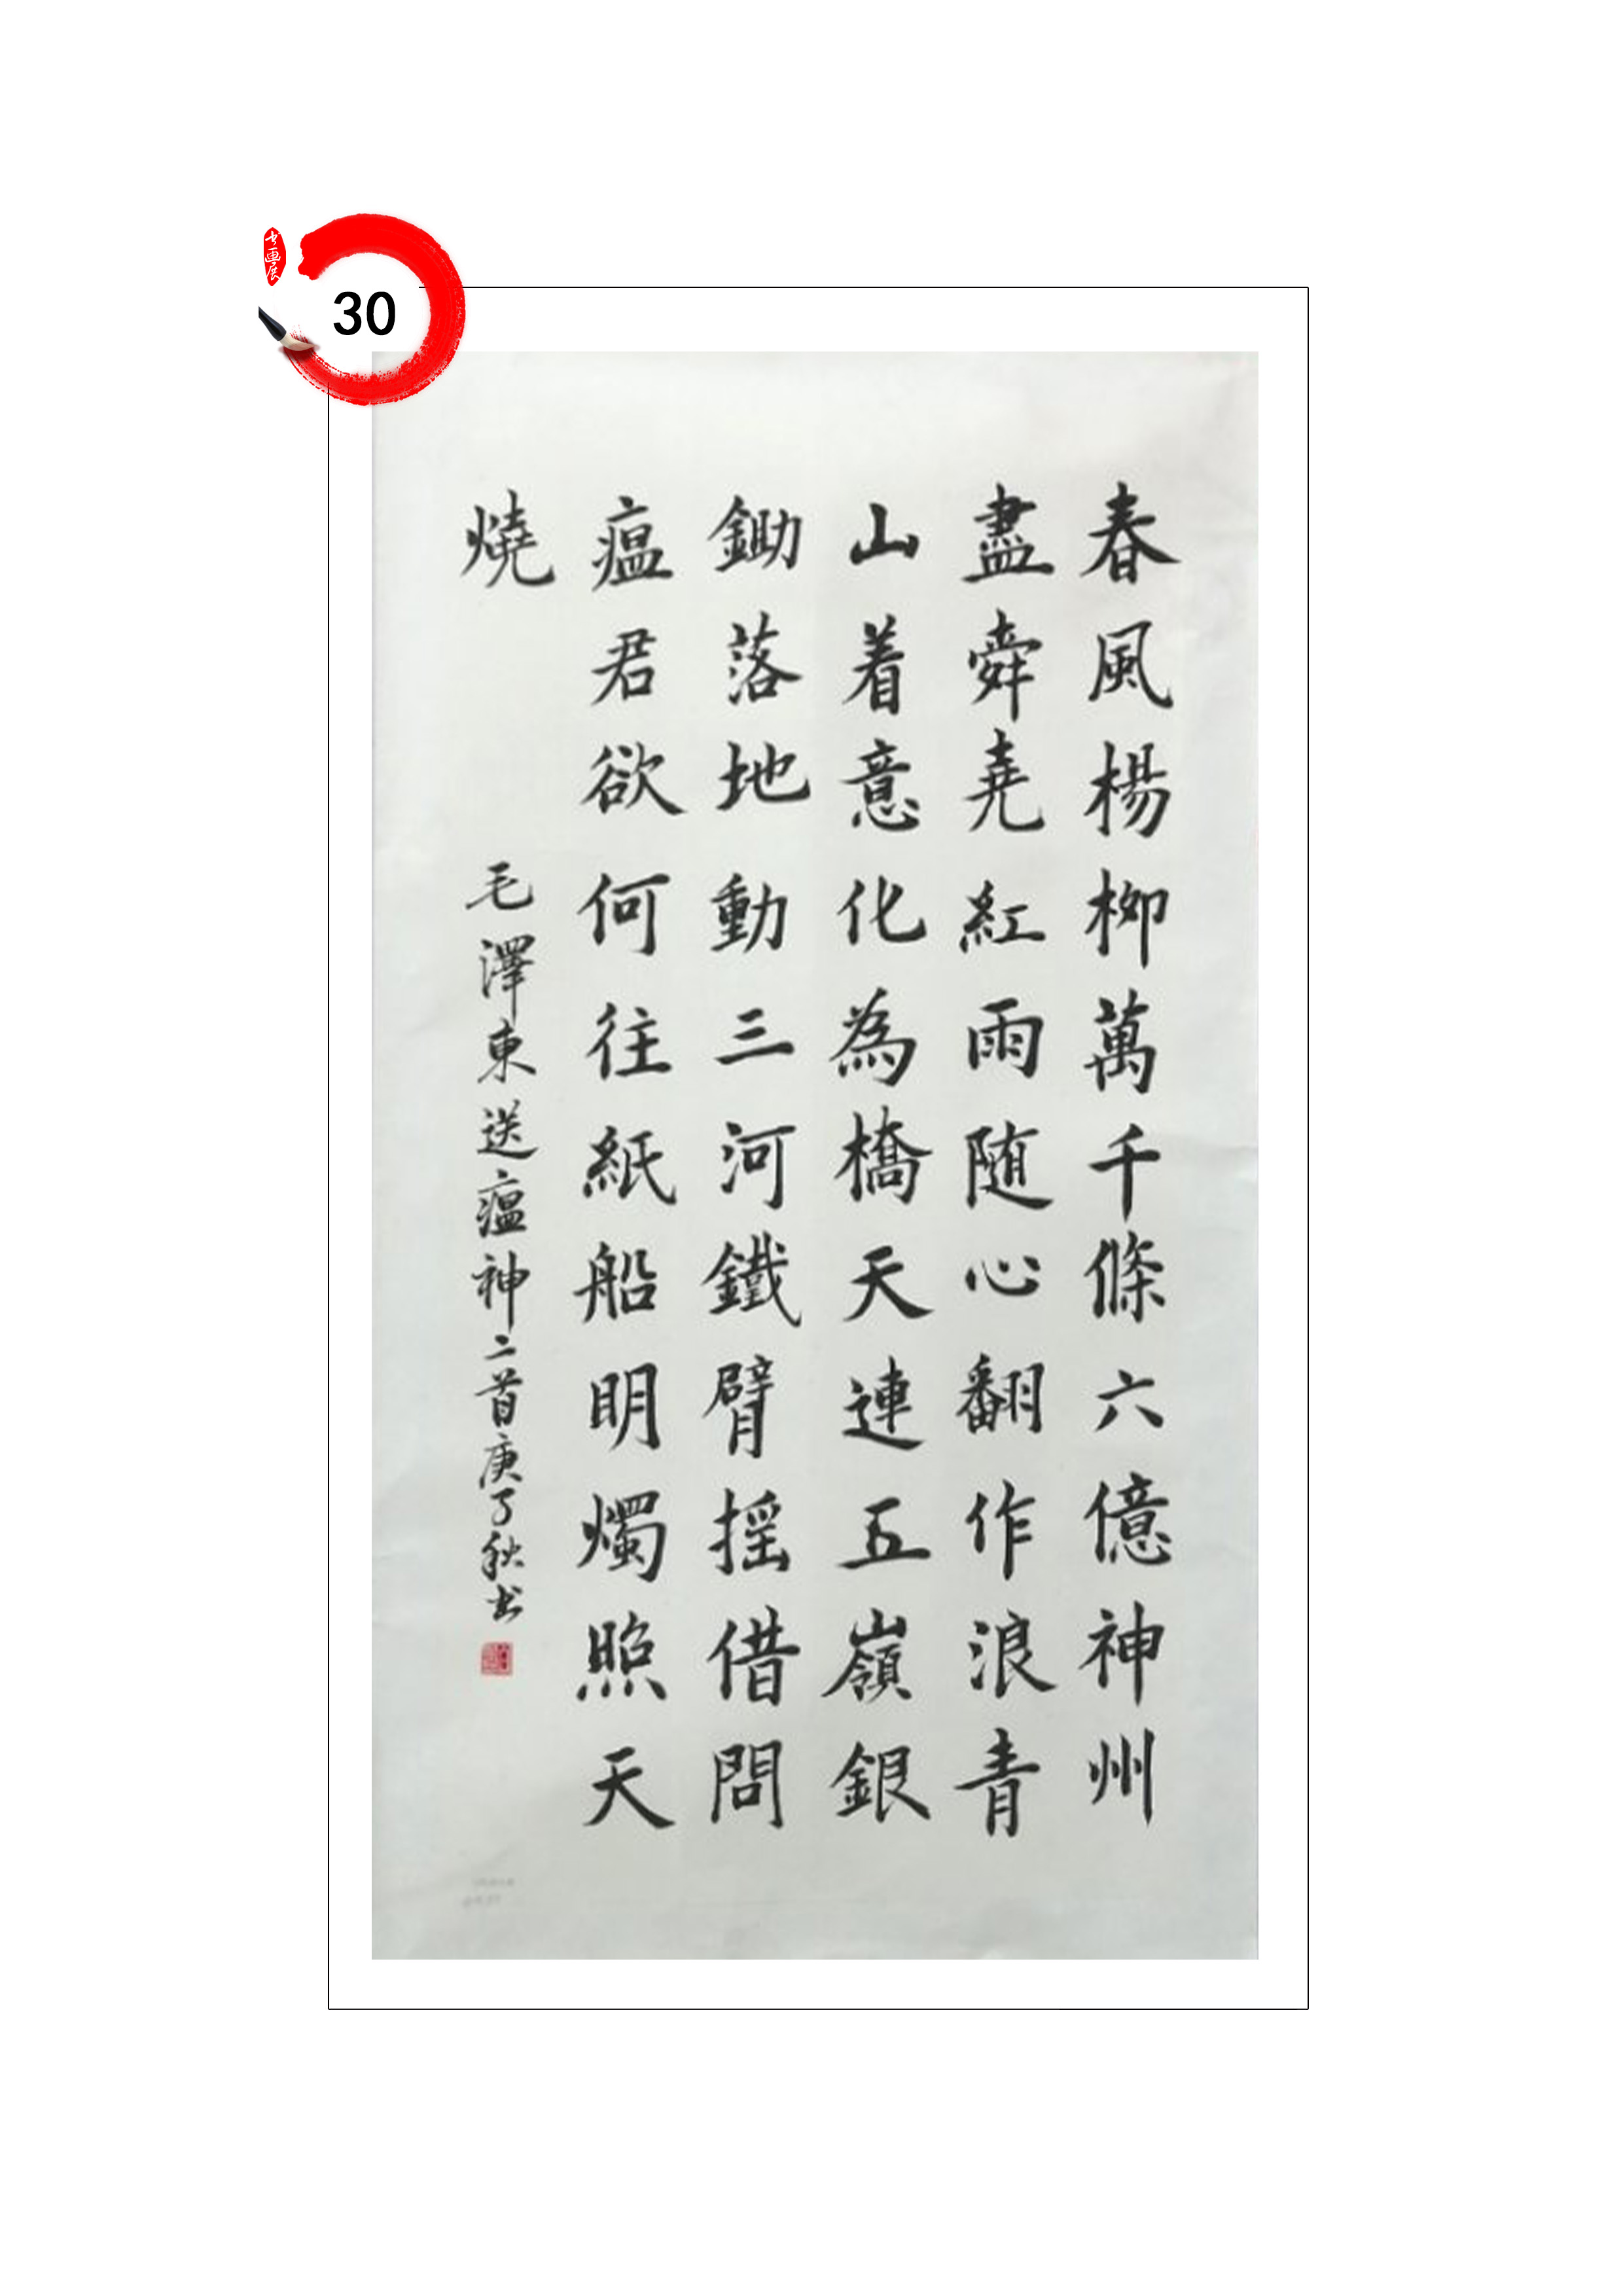 書画展
30
春風楊柳萬千條六億神州
盡舜堯紅雨随心翻作浪青
山着意化為橋天連五嶺銀
鋤落地動三河鐵臂摇借問
瘟君欲何往紙船明燭照天
燒
毛澤東送瘟神二首庚子秋书